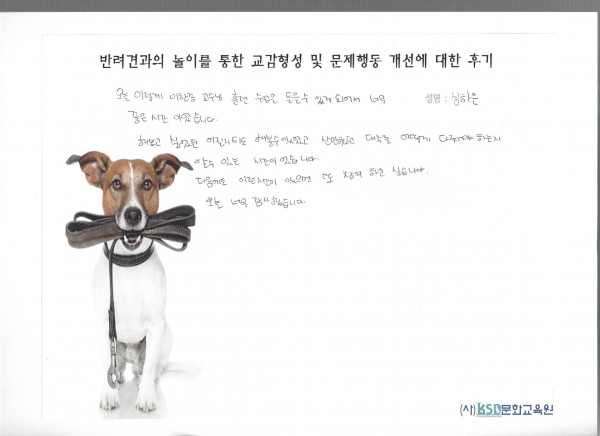 반려견과의 놀이를 통한 교감형성 및 문제행동 개선에 대한 후기
성명 : 심하은
오늘 이렇게 이찬종 교수님 훈련 수업을 들을수 있게 되어서 너무
좋은 시간 이였습니다.
해보고 싶었던 어질리티도 해볼수있었고 산만했던 대죽을 어떻게 다루어야 하는지
알수 있는 시간이 였습니다.
다음에도 이런시간이 있으면 또 참여 하고 싶습니다.
오늘 너무 감사했습니다.
(사)KSD문화교육원